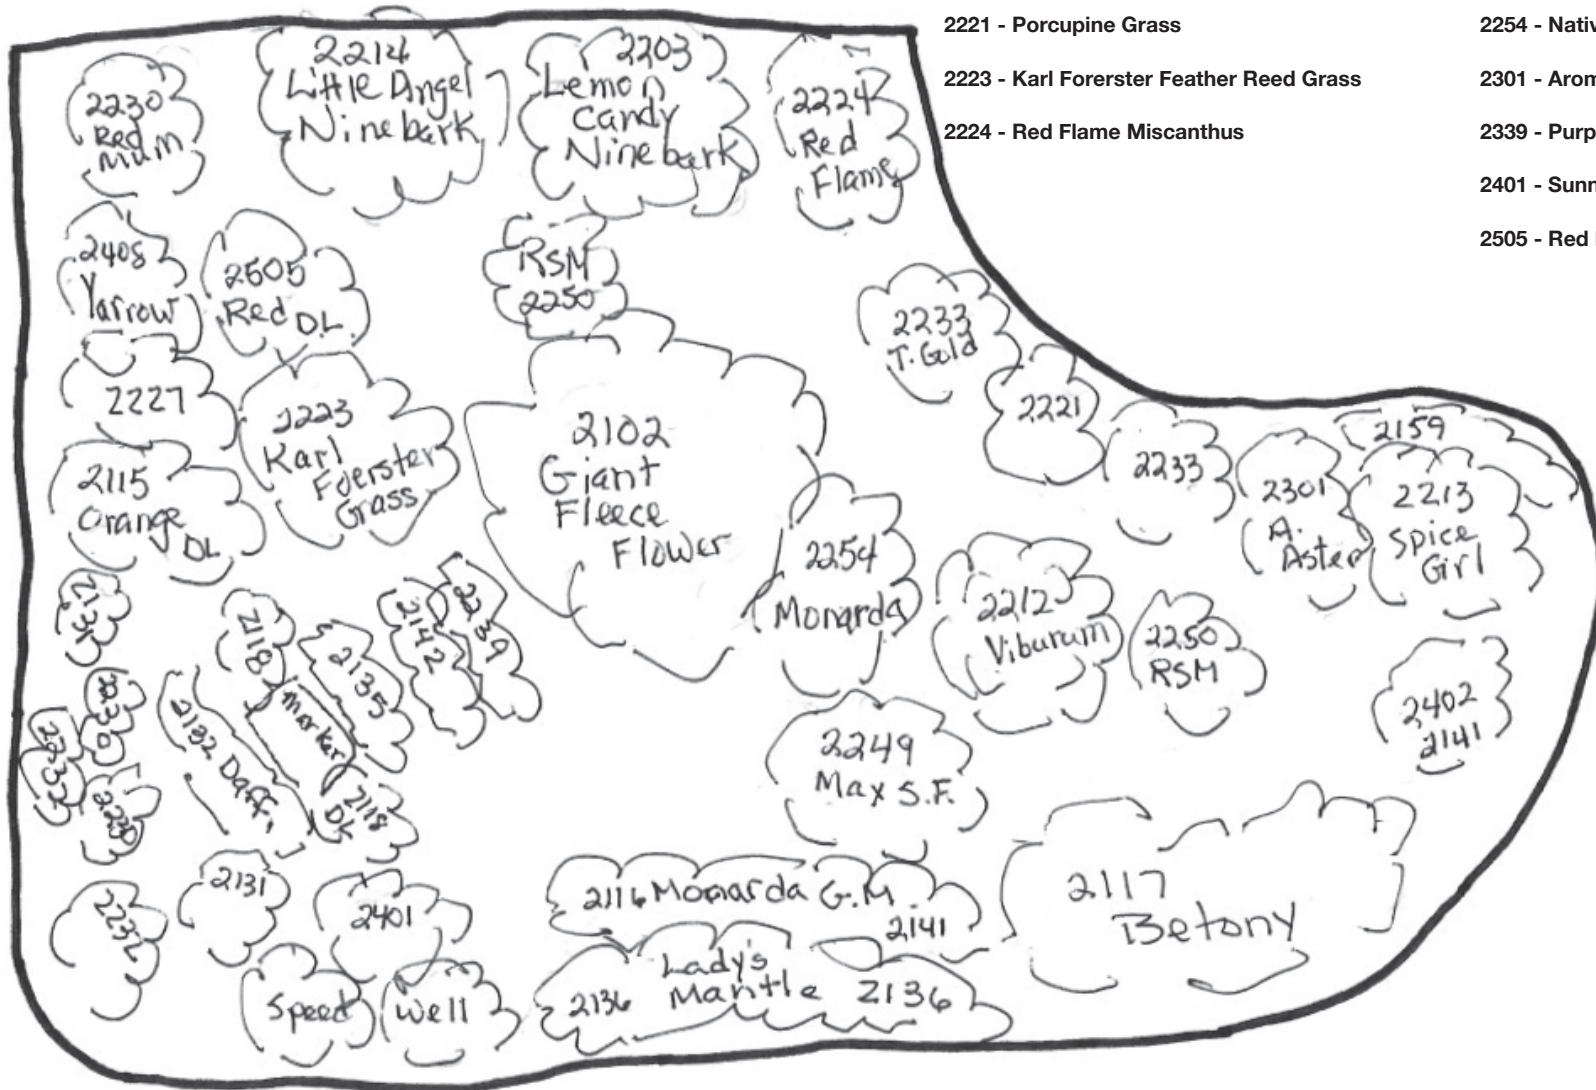 2221 - Porcupine Grass
2223 - Karl Forerster Feather Reed Grass
2224 - Red Flame Miscanthus
2254 - Nativ
2301 - Arom
2339 - Purp
2401 - Sunn
2505 - Red
2230
Red
Mum
2214
Little Angel
Ninebark
2203
Lemon
Candy
Ninebark
2224
Red
Flame
2408
Yarrow
2505
Red DL.
RSM
2250
2233
T. Gold
2227
2223
Karl
Foerster
Grass
2102
Giant
Fleece
Flower
2221
2233
2301
A.
Aster
2159
2213
Spice
Girl
2115
Orange
DL
2254
Monarda
2212
Viburum
2250
RSM
2131
2118
2135
2142
2239
marker
2132 Daff.
2118
DL
2230
2402
2141
2249
Max S.F.
2131
2401
2232
2116 Monarda G.M.
2141
2117
Betony
Lady's
2136 Mantle 2136
Speed well